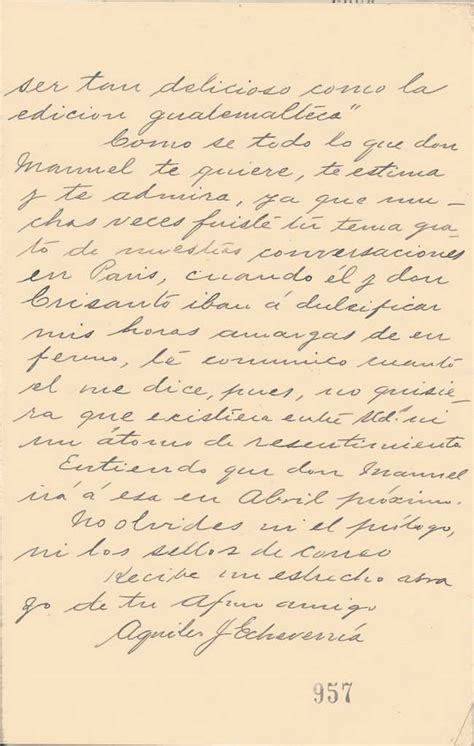 ser tan delicioso como la
edicion guatemalteca"
Como se todo lo que don
Manuel te quiere, te estima
y te admira, ya que mu-
chas veces fuiste tú tema gra-
to de nuestras conversaciones
en Paris, cuando él y don
Crisanto iban á dulcificar
mis horas amargas de en
fermo, te comunico cuanto
el me dice, pues, no quisie-
ra que existiera entre Uds. ni
un átomo de resentimiento
Entiendo que don Manuel
irá á esa en Abril próximo.
No olvides ni el prólogo,
ni los sellos de correo
Recibe un estrecho abra
zo de tu afmo amigo
Aquileo J Echeverría
957